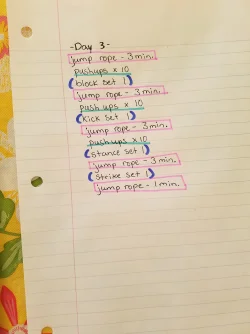 -Day 3-
jump rope - 3 min.
pushups x 10
(block set 1)
jump rope - 3 min.
push ups x 10
(kick set 1)
jump rope - 3 min.
pushups x 10
(stance set 1)
jump rope - 3 min.
(strike set 1)
jump rope - 1 min.